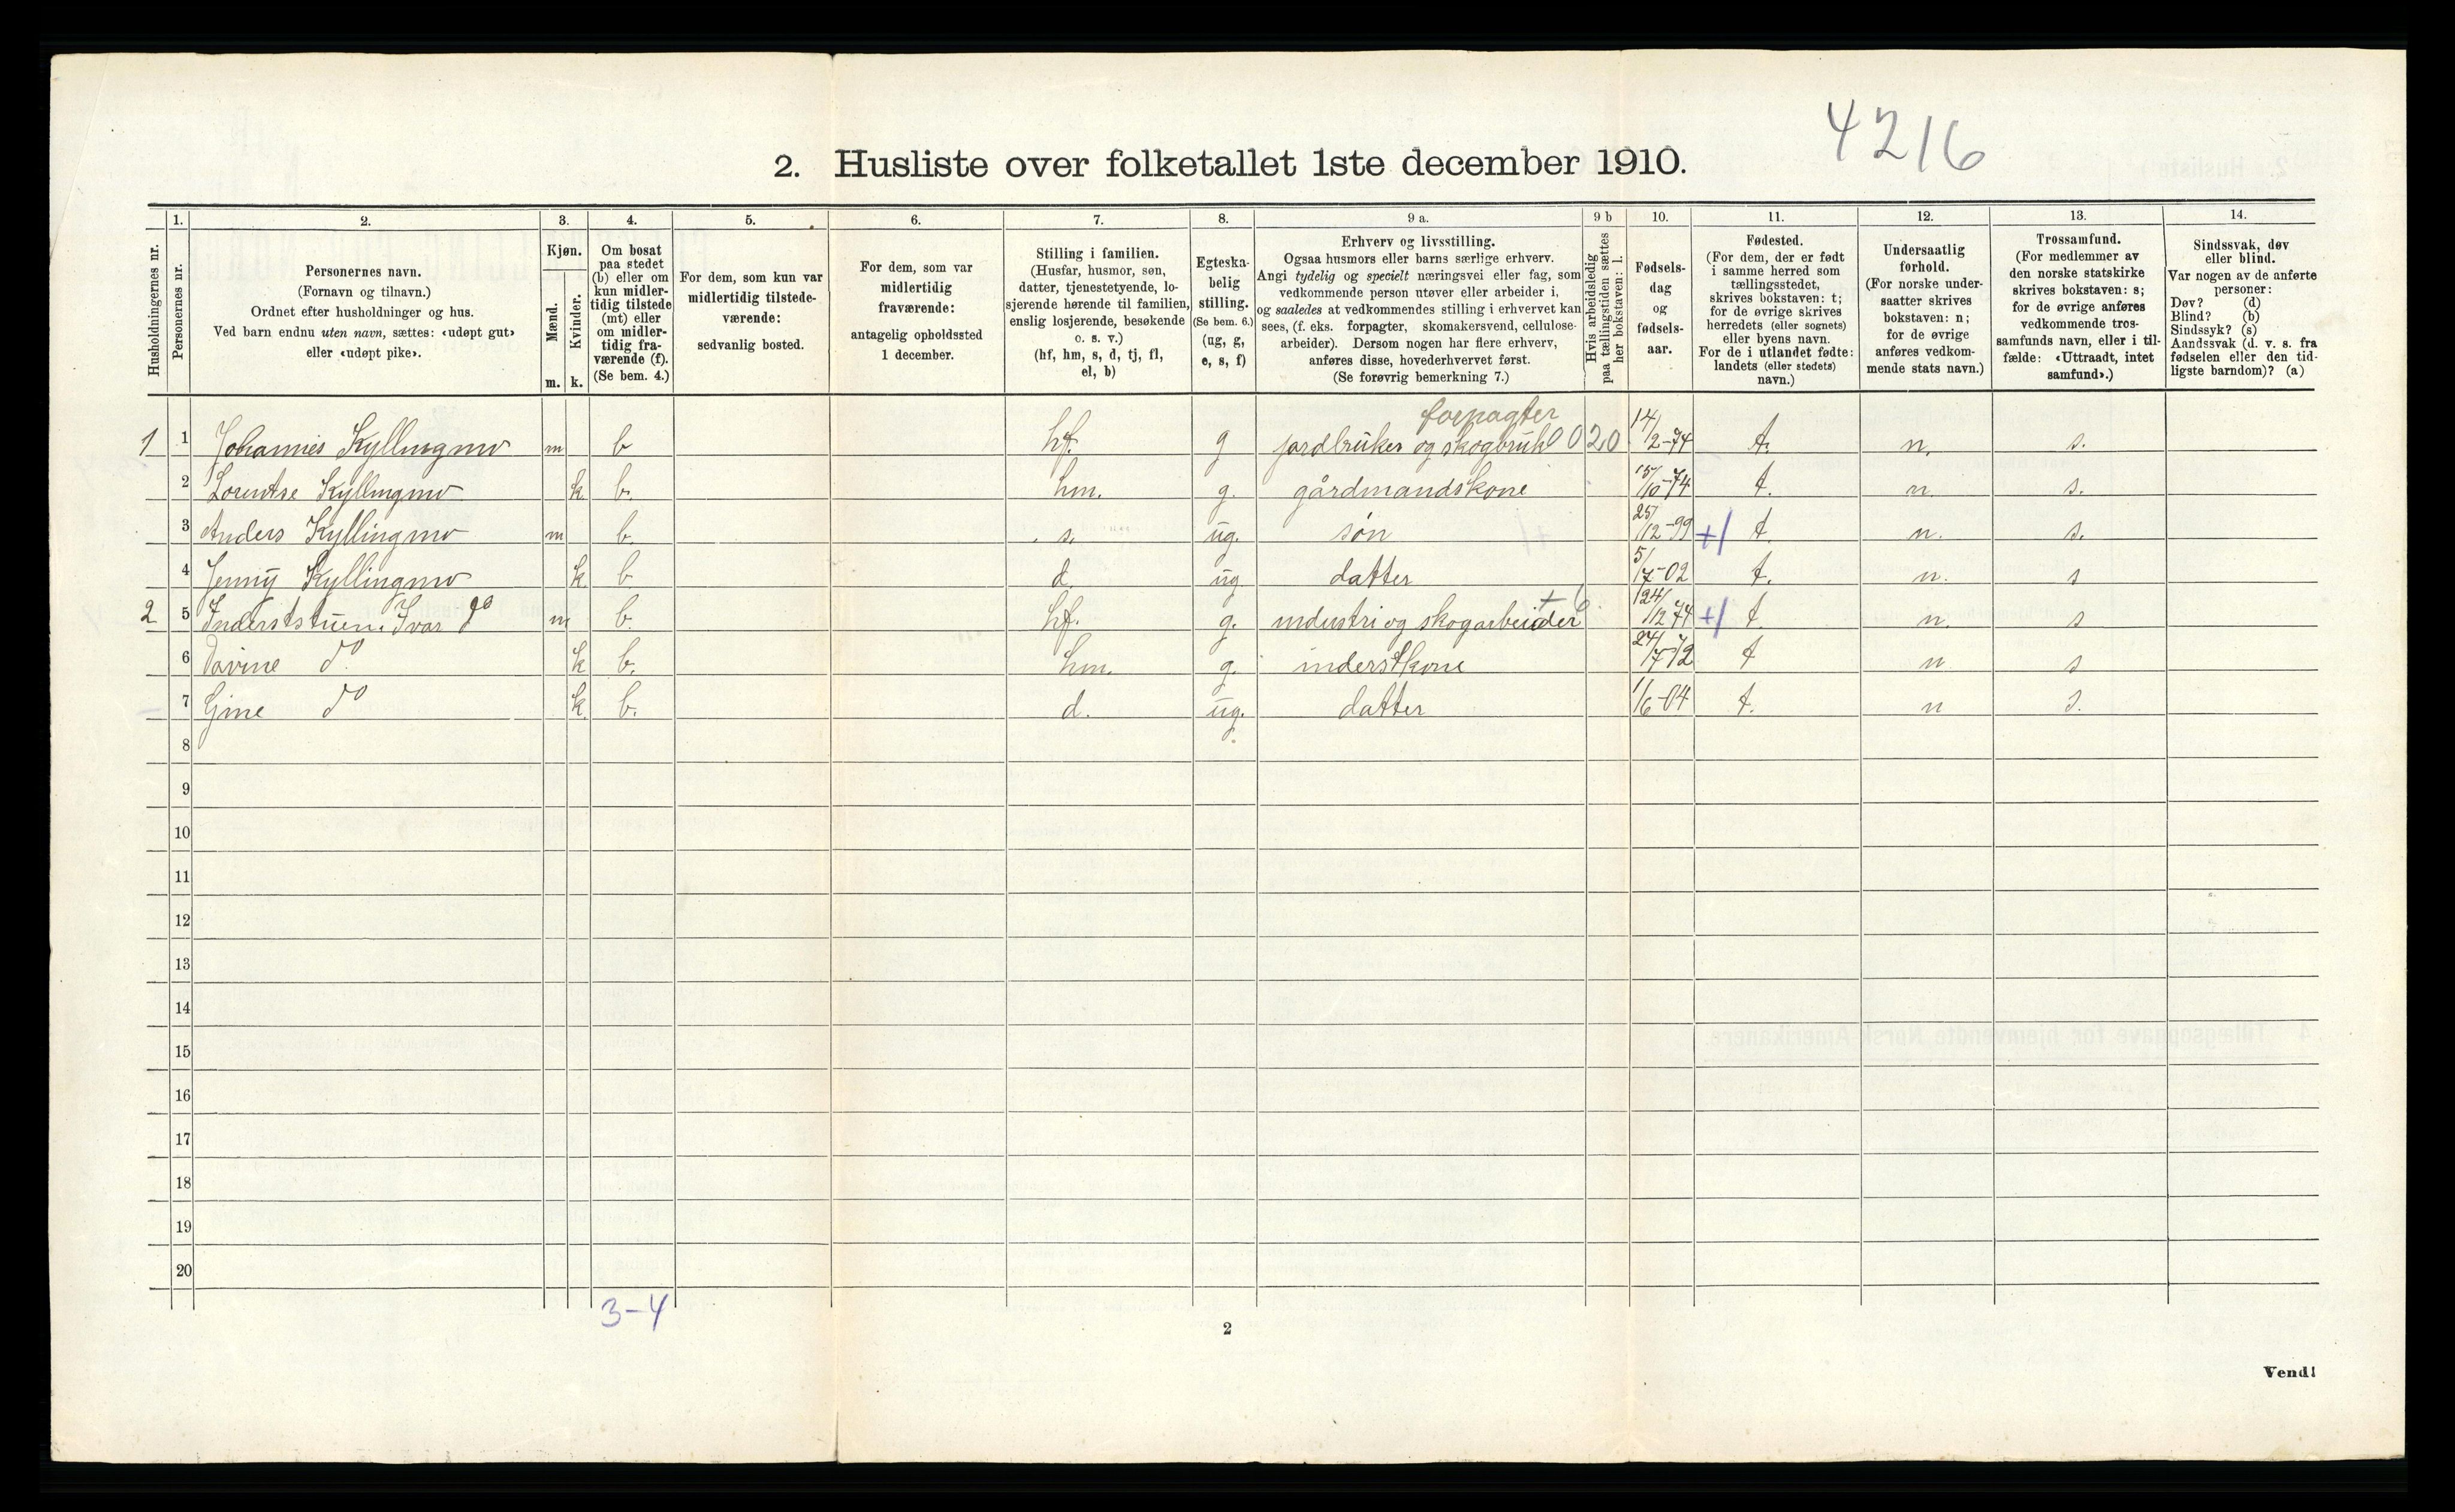 4216
2. Husliste over folketallet 1ste december 1910.
Husholdningernes nr.
1.
Personernes nr.
2.
Personernes navn.
(Fornavn og tilnavn.)
Ordnet efter husholdninger og hus.
Ved barn endnu uten navn, sættes: «udøpt gut»
eller «udøpt pike».
3.
Kjøn.
Mænd.
Kvinder.
m. k.
4.
Om bosat
paa stedet
(b) eller om
kun midler-
tidig tilstede
(mt) eller
om midler-
tidig fra-
værende (f).
(Se bem. 4.)
5.
For dem, som kun var
midlertidig tilstede-
værende:
sedvanlig bosted.
6.
For dem, som var
midlertidig
fraværende:
antagelig opholdssted
1 december.
7.
Stilling i familien.
(Husfar, husmor, søn,
datter, tjenestetyende, lo-
sjerende hørende til familien,
enslig losjerende, besøkende
o. s. v.)
(hf, hm, s, d, tj, fl,
el, b)
8.
Egteska-
belig
stilling.
(Se bem. 6.)
(ug, g,
e, s, f)
9 a.
Erhverv og livsstilling.
Ogsaa husmors eller barns særlige erhverv.
Angi tydelig og specielt næringsvei eller fag, som
vedkommende person utøver eller arbeider i,
og saaledes at vedkommendes stilling i erhvervet kan
sees, (f. eks. forpagter, skomakersvend, cellulose-
arbeider). Dersom nogen har flere erhverv,
anføres disse, hovederhvervet først.
(Se forøvrig bemerkning 7.)
9 b
Hvis arbeidsledig
paa tællingstiden sættes
her bokstaven: l.
10.
Fødsels-
dag
og
fødsels-
aar.
11.
Fødested.
(For dem, der er født
i samme herred som
tællingsstedet,
skrives bokstaven: t;
for de øvrige skrives
herredets (eller sognets)
eller byens navn.
For de i utlandet fødte:
landets (eller stedets)
navn.)
12.
Undersaatlig
forhold.
(For norske under-
saatter skrives
bokstaven: n;
for de øvrige
anføres vedkom-
mende stats navn.)
13.
Trossamfund.
(For medlemmer av
den norske statskirke
skrives bokstaven: s;
for de øvrige anføres
vedkommende tros-
samfunds navn, eller i til-
fælde: «Uttraadt, intet
samfund».)
14.
Sindssvak, døv
eller blind.
Var nogen av de anførte
personer:
Døv? (d)
Blind? (b)
Sindssyk? (s)
Aandssvak (d. v. s. fra
fødselen eller den tid-
ligste barndom)? (a)
forpagter
1 1 Johannes Kyllingmo m b hf. g jordbruker og skogbruk 0 020 14/2-74 t. n. s.
2 Lorentse Kyllingmo k b. hm. g. gårdmandskone 15/10-74 t. n. s.
3 Anders Kyllingmo m b. s. ug. søn 25/12-99 +/ t. n. s.
4 Jenny Kyllingmo k. b d ug datter 5/7-02 t. n. s
2 5 Inderststuen. Ivar do m b. hf. g. industri og skogarbeider 24/12 74 +/ t n. s
6 Davine do. k b. hm. g. inderstkone 27/7-72 t n s
7 Gine do k b. d. ug. datter 1/6-04 t. n s.
8
9
10
11
12
13
14
15
16
17
18
19
20
3-4
2
Vend!